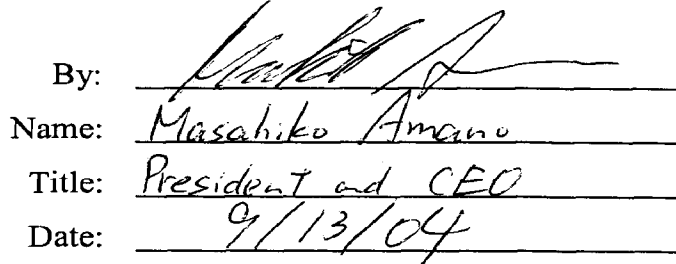 By:
Name: Masahiko Amano
Title: President and CEO
Date: 9/13/04